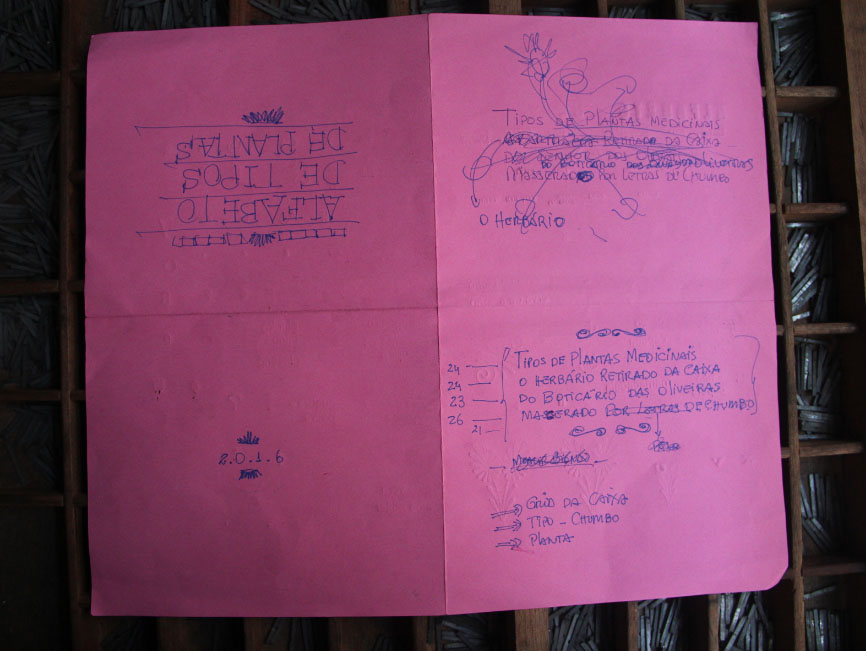 ALFABETO
DE TIPOS
DE PLANTAS
2.0.1.6
TIPOS DE PLANTAS MEDICINAIS
RETIRADO DA CAIXA
DO BOTICÁRIO DAS OLIVEIRAS
MASSERADO POR LETRAS DE CHUMBO
O HERBÁRIO
24
24
23
26
21
TIPOS DE PLANTAS MEDICINAIS
O HERBÁRIO RETIRADO DA CAIXA
DO BOTICÁRIO DAS OLIVEIRAS
MACERADO POR LETRAS DE CHUMBO
GRID DA CAIXA
TIPO - CHUMBO
PLANTA